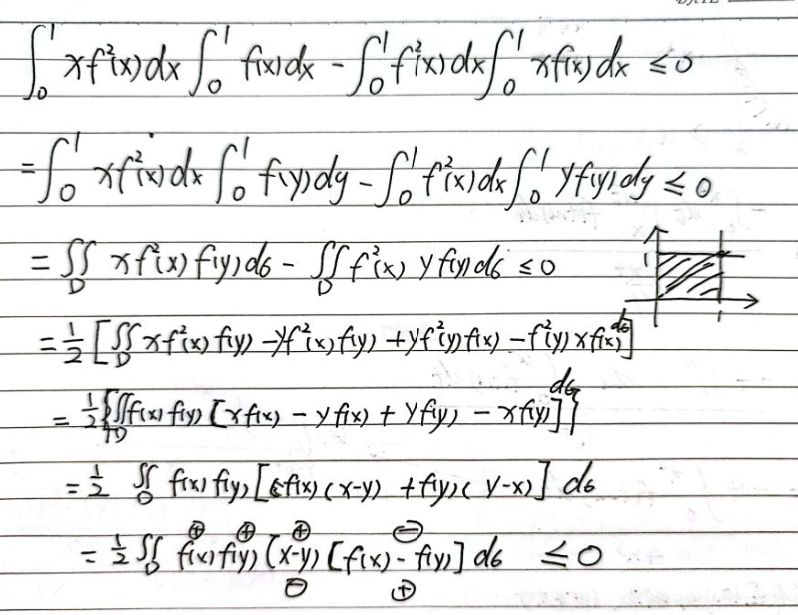 DATE
∫₀¹ xf²(x)dx ∫₀¹ f(x)dx - ∫₀¹ f²(x)dx ∫₀¹ xf(x)dx ≤ 0
= ∫₀¹ xf²(x)dx ∫₀¹ f(y)dy - ∫₀¹ f²(x)dx ∫₀¹ yf(y)dy ≤ 0
= ∬_D xf²(x)f(y)dσ - ∬_D f²(x)yf(y)dσ ≤ 0
1
1
= ½ [∬_D xf²(x)f(y) - yf²(x)f(y) + yf²(y)f(x) - f²(y)xf(x) dσ]
= ½ {∬_D f(x)f(y) [xf(x) - yf(x) + yf(y) - xf(y)] dσ}
= ½ ∬_D f(x)f(y) [f(x)(x-y) + f(y)(y-x)] dσ
⊕ ⊕ ⊕ ⊖
= ½ ∬_D f(x)f(y)(x-y)[f(x) - f(y)] dσ ≤ 0
⊖ ⊕